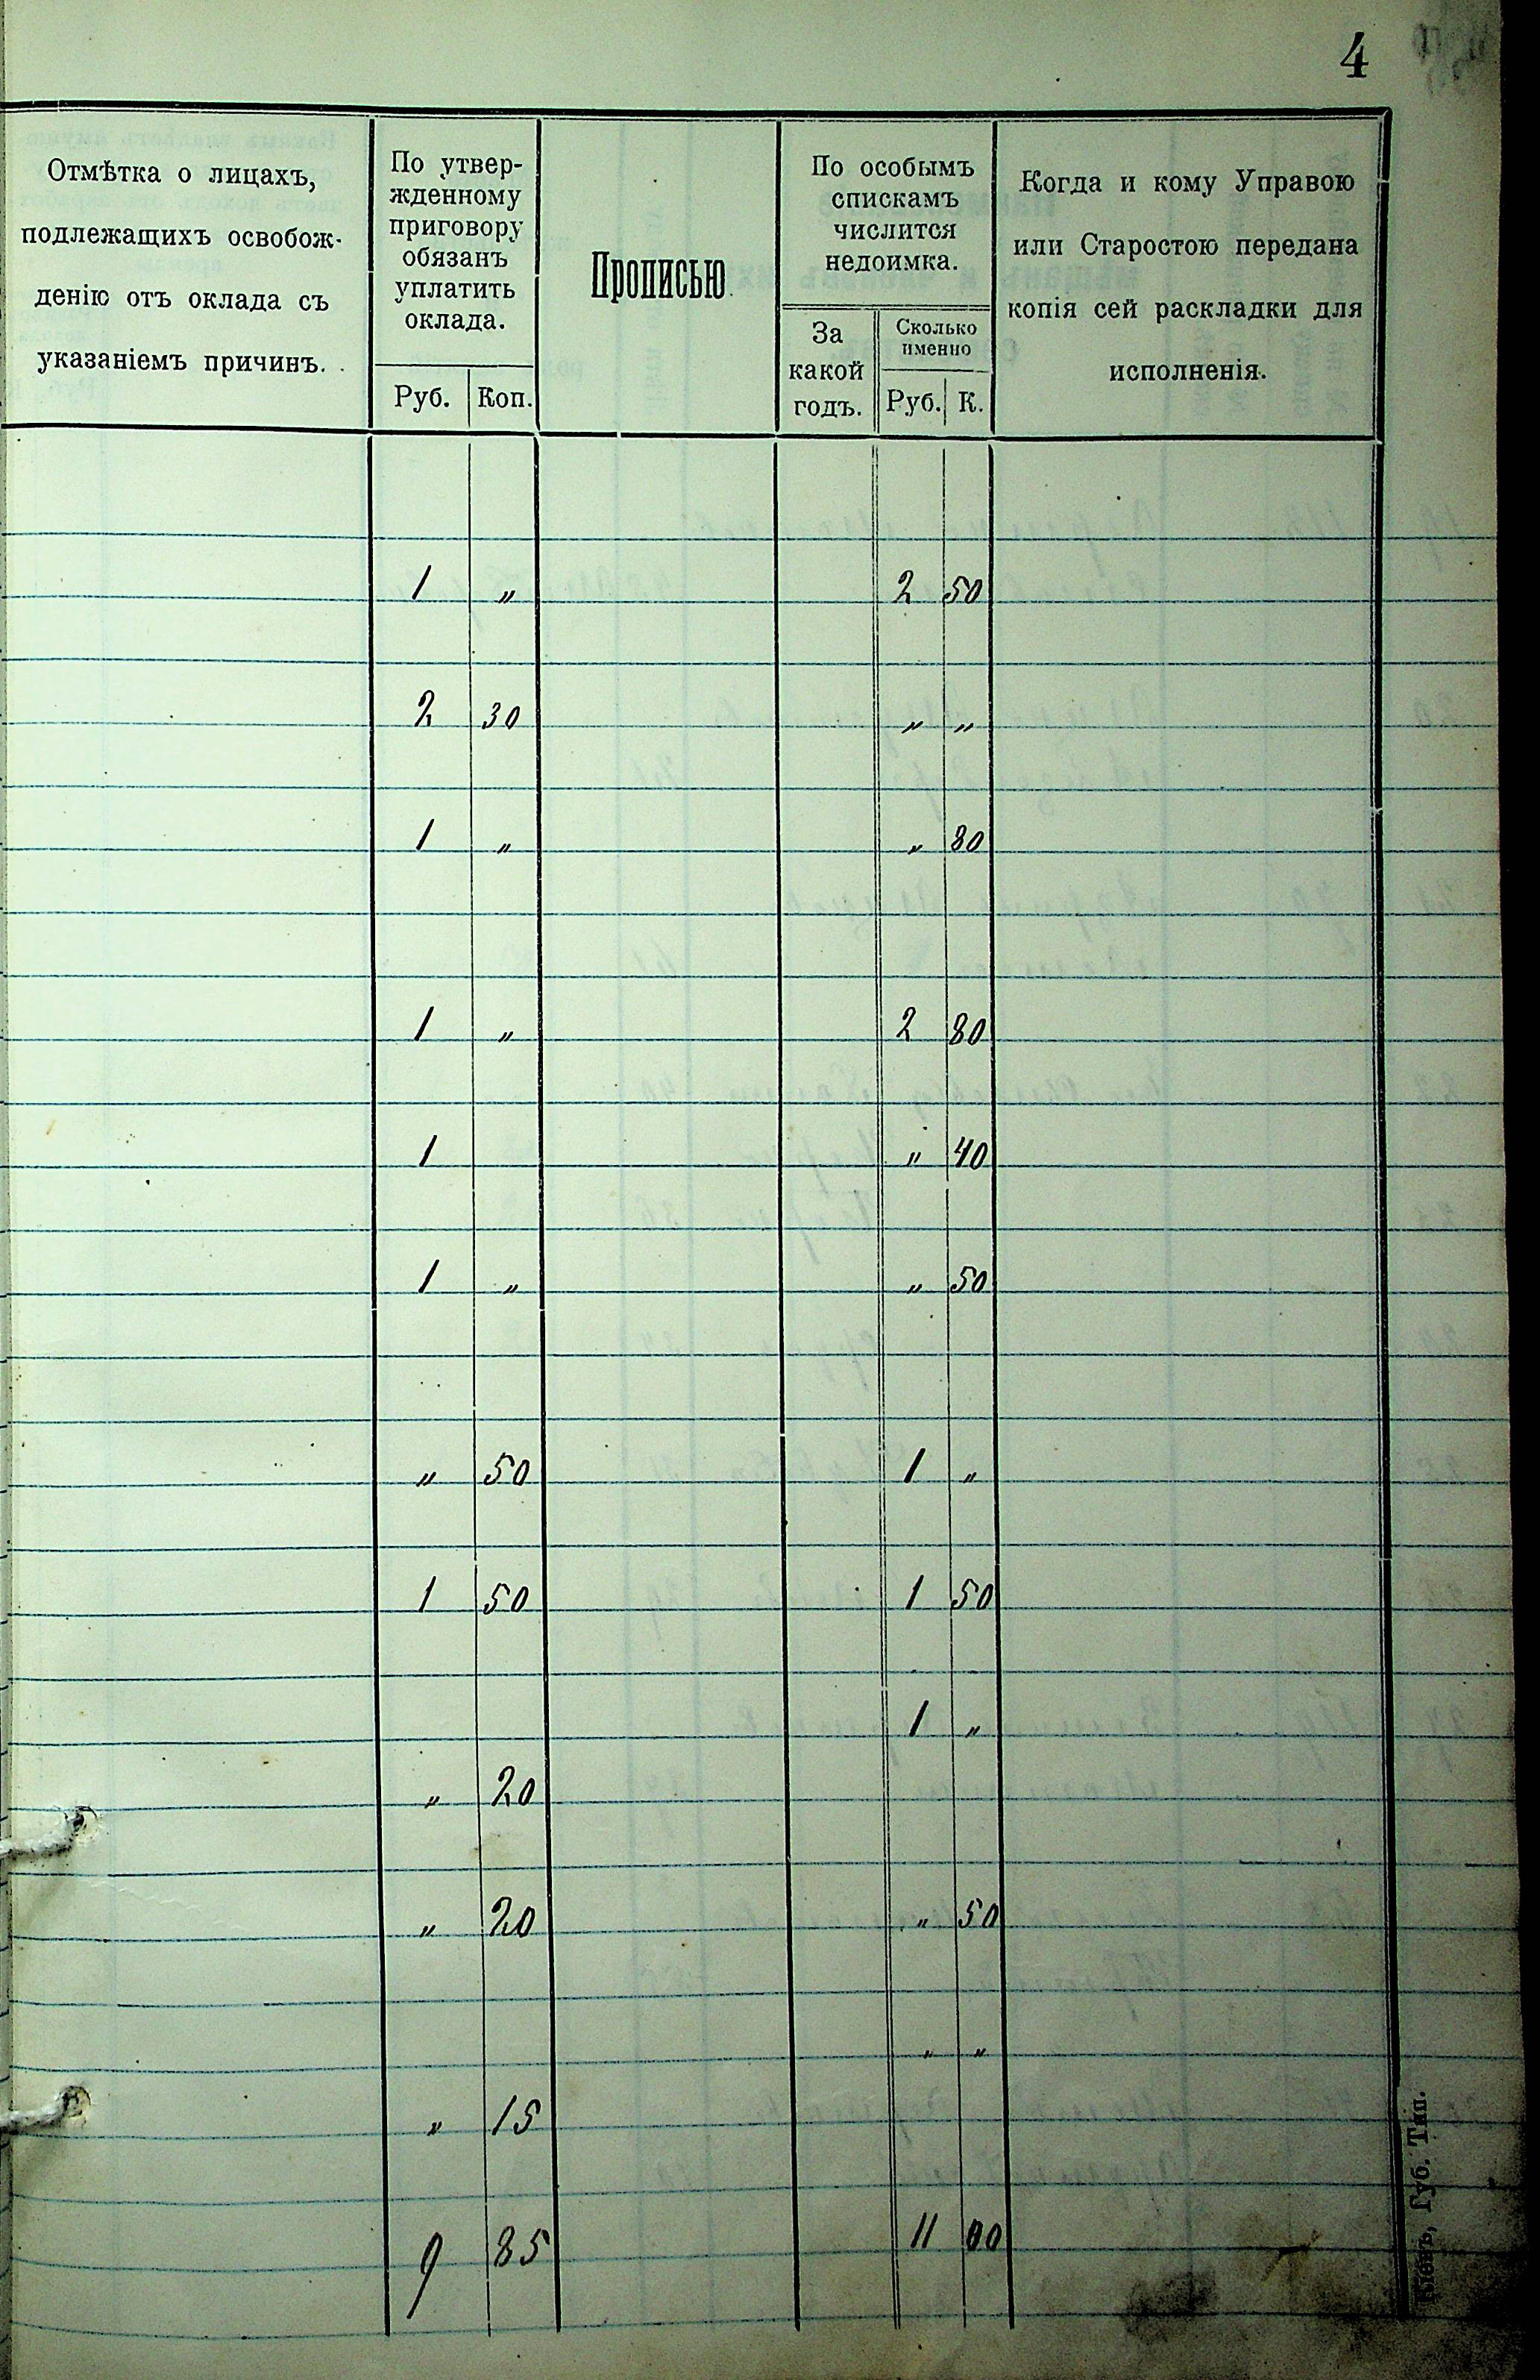 4
Отмѣтка о лицахъ,
подлежащихъ освобож-
денію отъ оклада съ
указаніемъ причинъ.
По утвер-
жденному
приговору
обязанъ
уплатить
оклада.
Руб. Коп.
Прописью.
По особымъ
спискамъ
числится
недоимка.
За
какой
годъ.
Сколько
именно
Руб. К.
Когда и кому Управою
или Старостою передана
копія сей раскладки для
исполненія.
1 „ 2 50
2 30 „ „
1 „ „ 80
1 „ 2 80
1 „ 40
1 „ „ 50
„ 50 1 „
1 50 1 50
1 „
„ 20
„ 20 „ 50
„ „
„ 15
9 85 11 00
Кіевъ, Губ. Тип.